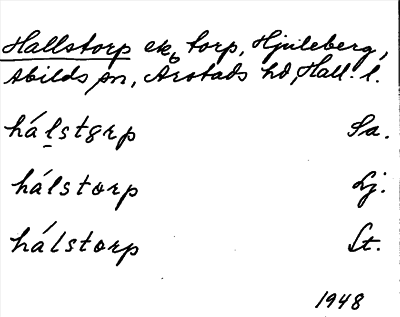 Hallstorp ek, torp, Hjuleberg,
Abilds sn, Årstads hd, Hall. l.
hálstgrp Sa.
hálstorp Lj.
hálstorp St.
1948